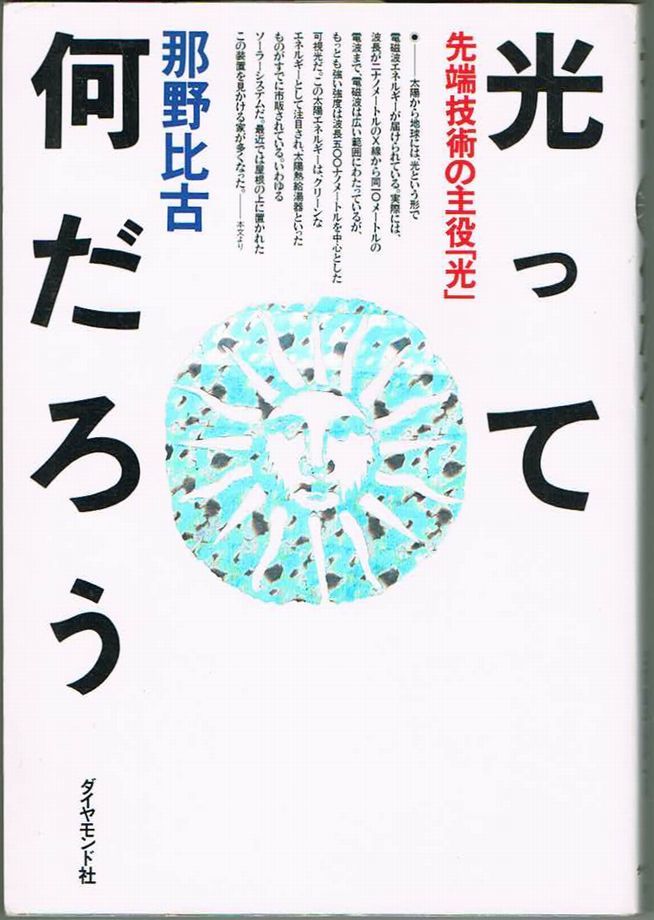 光って
何だろう
先端技術の主役「光」
●――太陽から地球には、光という形で
電磁波エネルギーが届けられている。実際には、
波長が二ナノメートルのX線から同一〇メートルの
電波まで、電磁波は広い範囲にわたっているが、
もっとも強い強度は波長五〇〇ナノメートルを中心とした
可視光だ。この太陽エネルギーは、クリーンな
エネルギーとして注目され、太陽熱給湯器といった
ものがすでに市販されている。いわゆる
ソーラーシステムだ。最近では屋根の上に置かれた
この装置を見かける家が多くなった。――本文より
那野比古
ダイヤモンド社